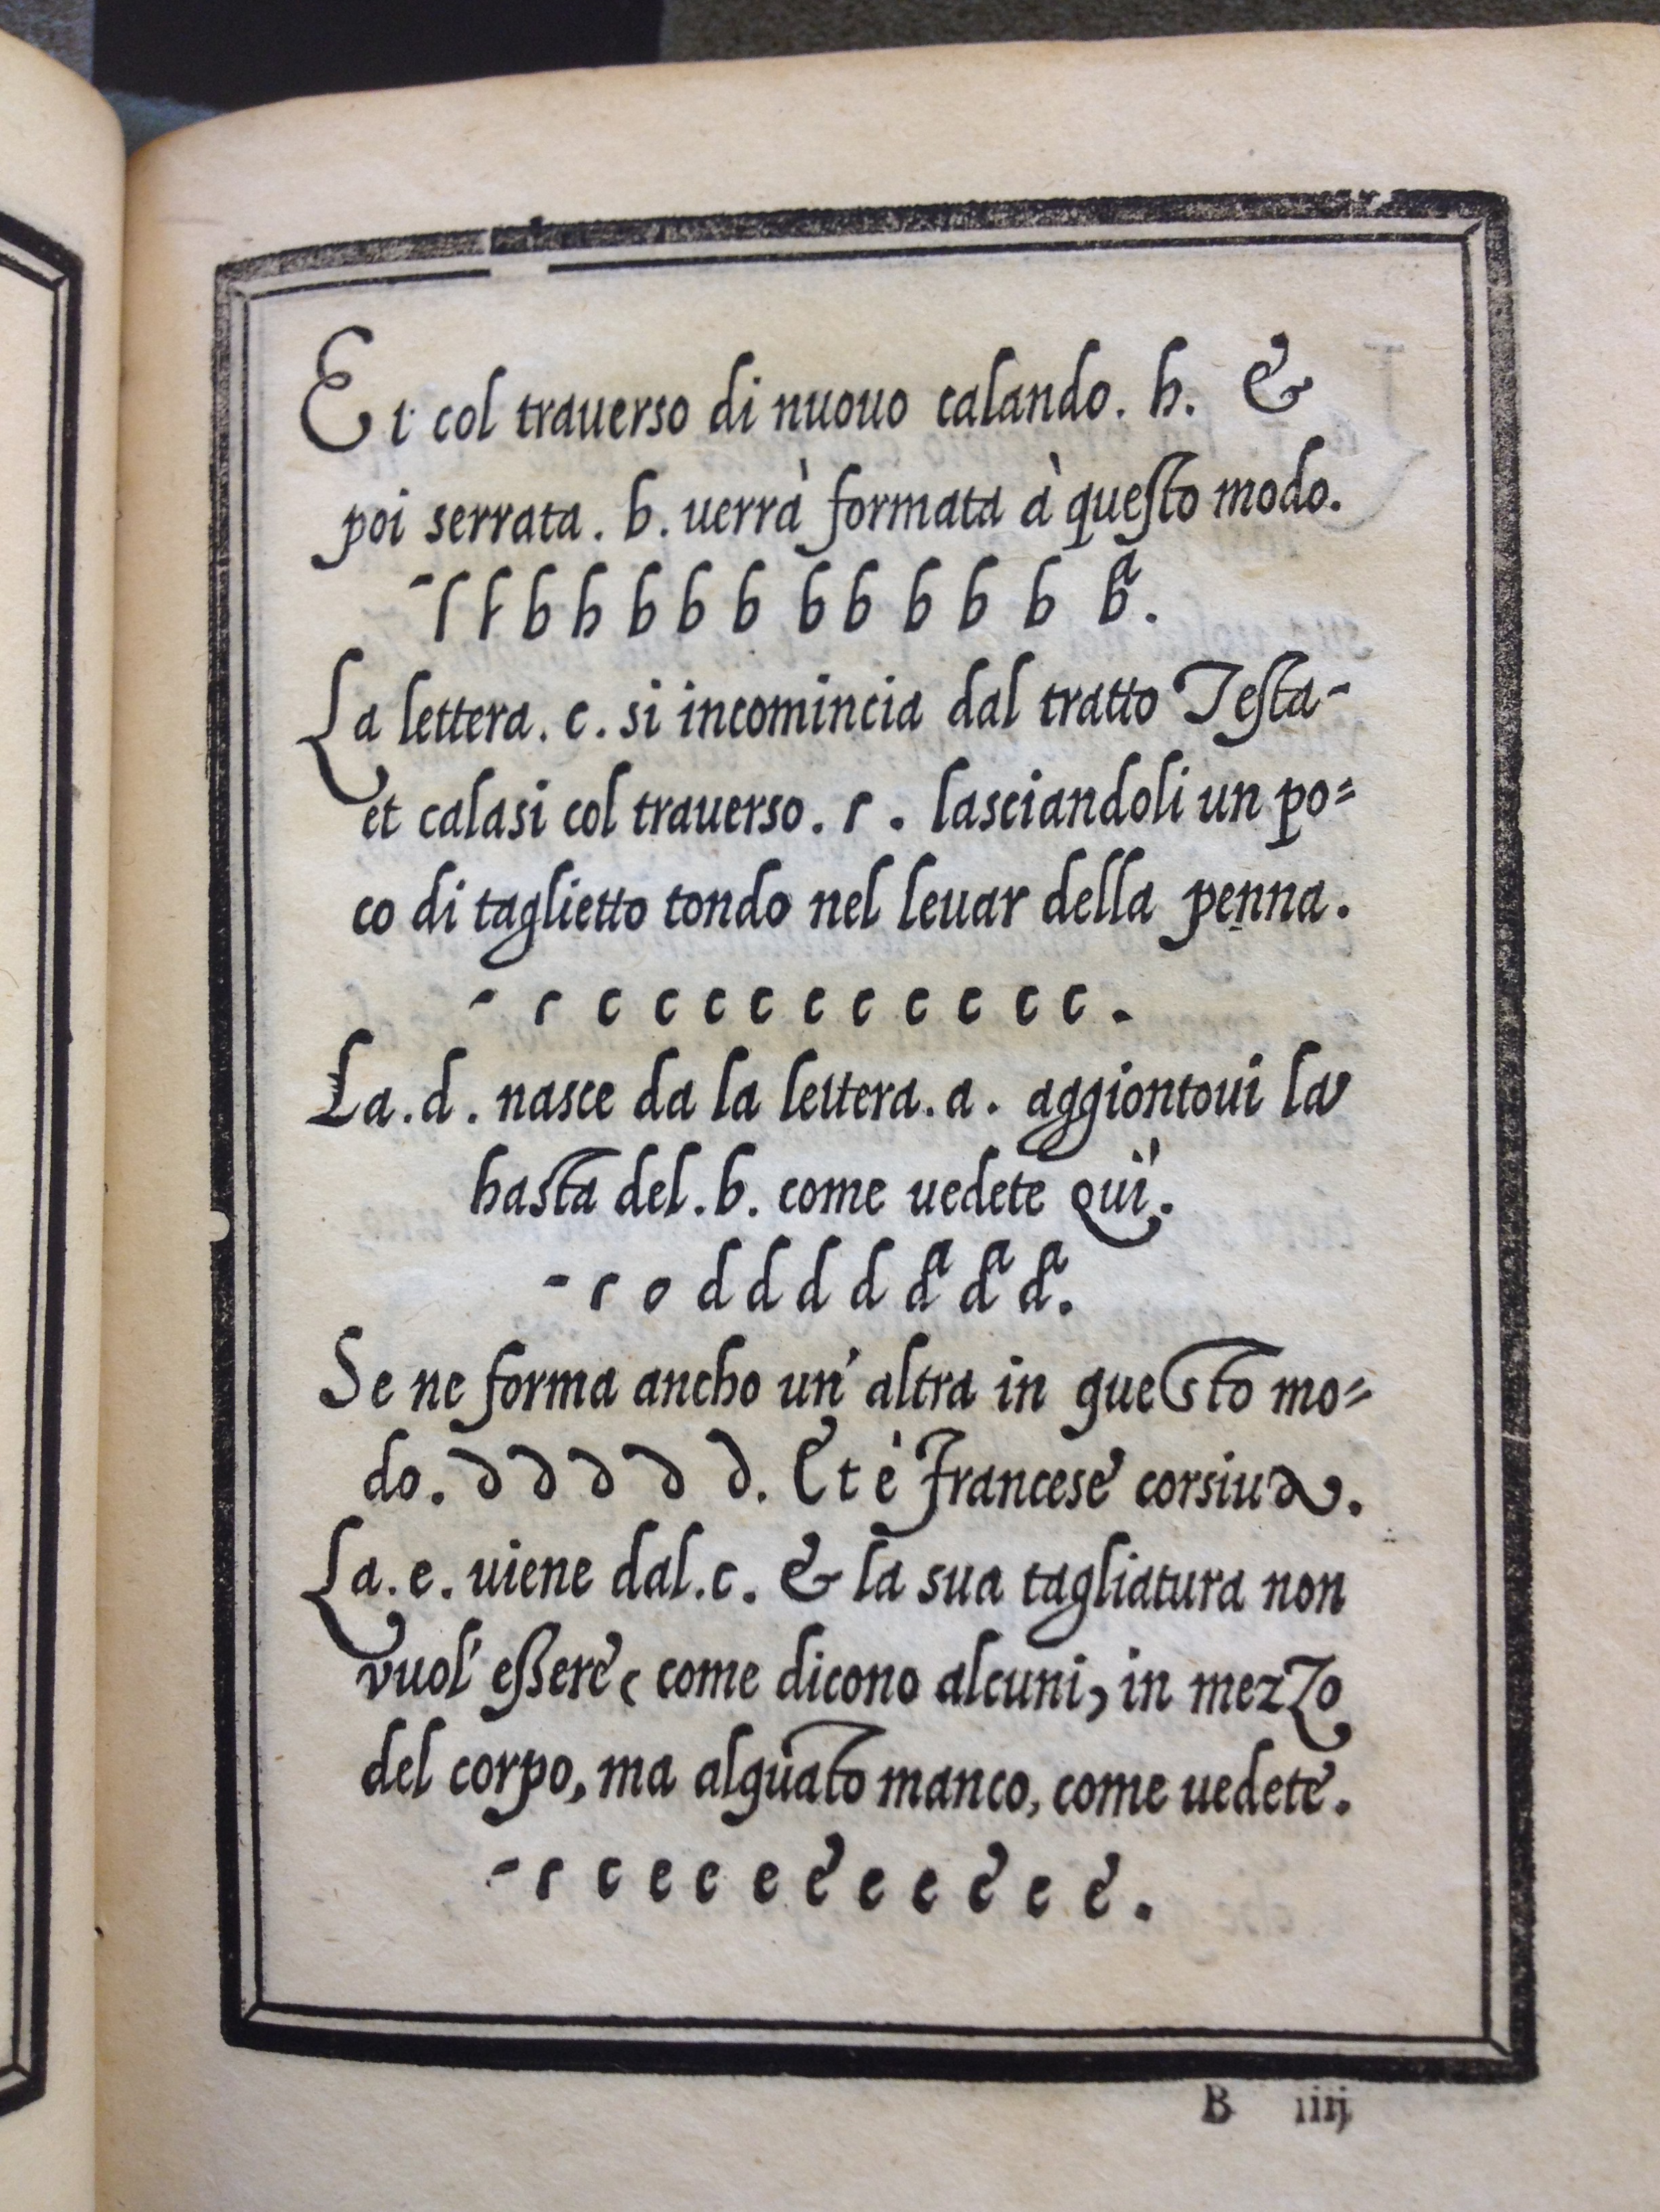 Et col trauerso di nuouo calando. h. &
poi serrata. b. uerrà formata à questo modo.
- ſ ſ b h b b b b b b b b b.
La lettera. c. si incomincia dal tratto Testa -
et calasi col trauerso. ɾ. lasciandoli un po=
co di taglietto tondo nel leuar della penna.
- ɾ c c c c c c c c c c.
La. d. nasce da la lettera. a. aggiontoui la
hasta del. b. come uedete qui'.
- ɾ o d d d d d d d.
Se ne forma ancho un' altra in questo mo=
do. ∂ ∂ ∂ ∂ ∂. Et è Francese corsiua.
La. e. uiene dal. c. & la sua tagliatura non
vuol' eßere, come dicono alcuni, in mezzo
del corpo, ma alquāto manco, come uedete.
- ɾ c e c e e e e e e e.
B iiij